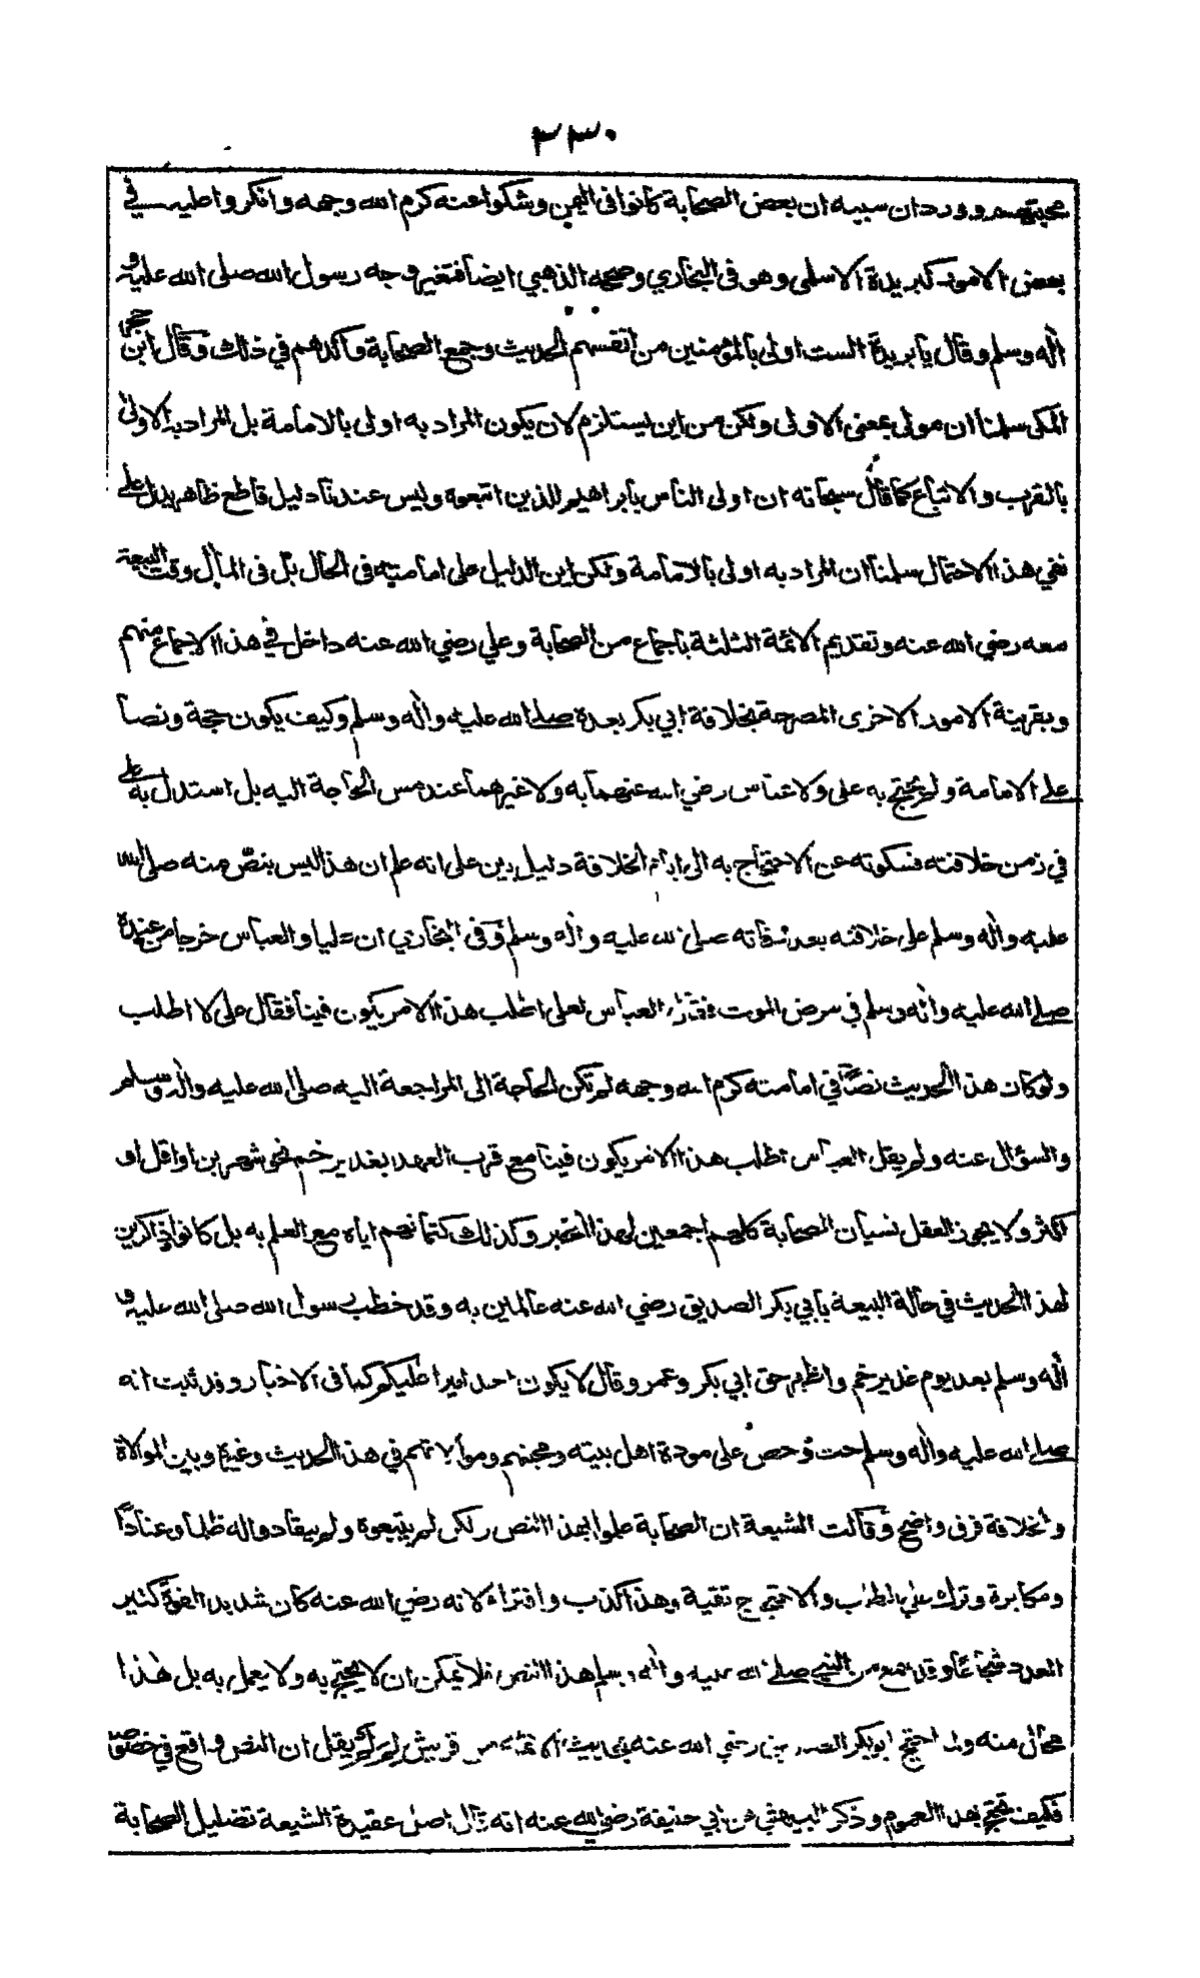 ٣٣٠
محبتهم وورد ان سببه ان بعض الصحابة كانوا فى اليمن وشكوا عنه كرم الله وجهه وانكروا عليه في
بعض الامور كبريدة الاسلمى وهو فى البخاري وصححه الذهبي ايضا فتغير وجه رسول الله صلى الله عليه و
اله وسلم وقال يا بريدة الست اولى بالمؤمنين من انفسهم الحديث وجمع الصحابة واكدهم في ذلك وقال ابن حجر
المكى سلمنا ان مولى بمعنى الاولى ولكن من اين يستلزم لان يكون المراد به اولى بالامامة بل المراد به الاولى
بالقرب والاتباع كما قال سبحانه ان اولى الناس بابراهيم للذين اتبعوه وليس عندنا دليل قاطع ظاهر يدل على
نفي هذا الاحتمال سلمنا ان المراد به اولى بالامامة ولكن اين الدليل على امامته فى الحال بل فى المأل وقت البيعة
معه رضي الله عنه وتقديم الائمة الثلثة باجماع من الصحابة وعلي رضي الله عنه داخل في هذا الاجماع منهم
وبقرينة الامور الاخرى المصرحة بخلافة ابي بكر بعده صلى الله عليه واله وسلم وكيف يكون حجة ونصا
على الامامة ولم يحتج به على ولا عباس رضي الله عنهما به ولا غيرهما عند مس الحاجة اليه بل استدل به على
في زمن خلافته فسكوته عن الاحتجاج به الى ايام الخلافة دليل بين على انه علم ان هذا ليس بنص منه صلى الله
عليه واله وسلم على خلافته بعد وفاته صلى الله عليه واله وسلم وفى البخاري ان عليا والعباس خرجا من عنده
صلى الله عليه واله وسلم في مرض الموت فقال العباس لعلى اطلب هذا الامر يكون فينا فقال على لا اطلب
ولو كان هذا الحديث نصا في امامته كرم الله وجهه لم تكن الحاجة الى المراجعة اليه صلى الله عليه واله وسلم
والسؤال عنه ولم يقل العباس اطلب هذا الامر يكون فينا مع قرب العهد بغدير خم نحو شهرين او اقل او
اكثر ولا يجوز العقل نسيان الصحابة كلهم اجمعين لهذا الخبر وكذلك كتمانهم اياه مع العلم به بل كانوا ذاكرين
لهذا الحديث في حالة البيعة بابي بكر الصديق رضي الله عنه عالمين به وقد خطب رسول الله صلى الله عليه و
اله وسلم بعد يوم غدير خم واظهر حق ابي بكر وعمر وقال لا يكون احد اميرا عليكم كما فى الاخبار وقد ثبت انه
صلى الله عليه واله وسلم حث وحض على مودة اهل بيته ومحبتهم وموالاتهم في هذا الحديث وغيره وبين الموالاة
والخلافة فرق واضح وقالت الشيعة ان الصحابة علموا بهذا النص لكن لم يتبعوه ولم ينقادوا له ظلما وعنادا
ومكابرة وترك علي الطلب والاحتجاج تقية وهذا كذب وافتراء لانه رضي الله عنه كان شديد القوة كثير
العدد شجاعا وقد سمع من النبي صلى الله عليه واله وسلم هذا النص فلا يمكن ان لا يحتج به ولا يعمل به بل هذا
محال منه ولما احتج ابو بكر الصديق رضي الله عنه بحديث الائمة من قريش لم يقل ان النص واقع في خصوص
فكيف تحتج بهذا العموم وذكر البيهقي عن ابي حنيفة رضي الله عنه انه قال اصل عقيدة الشيعة تضليل الصحابة